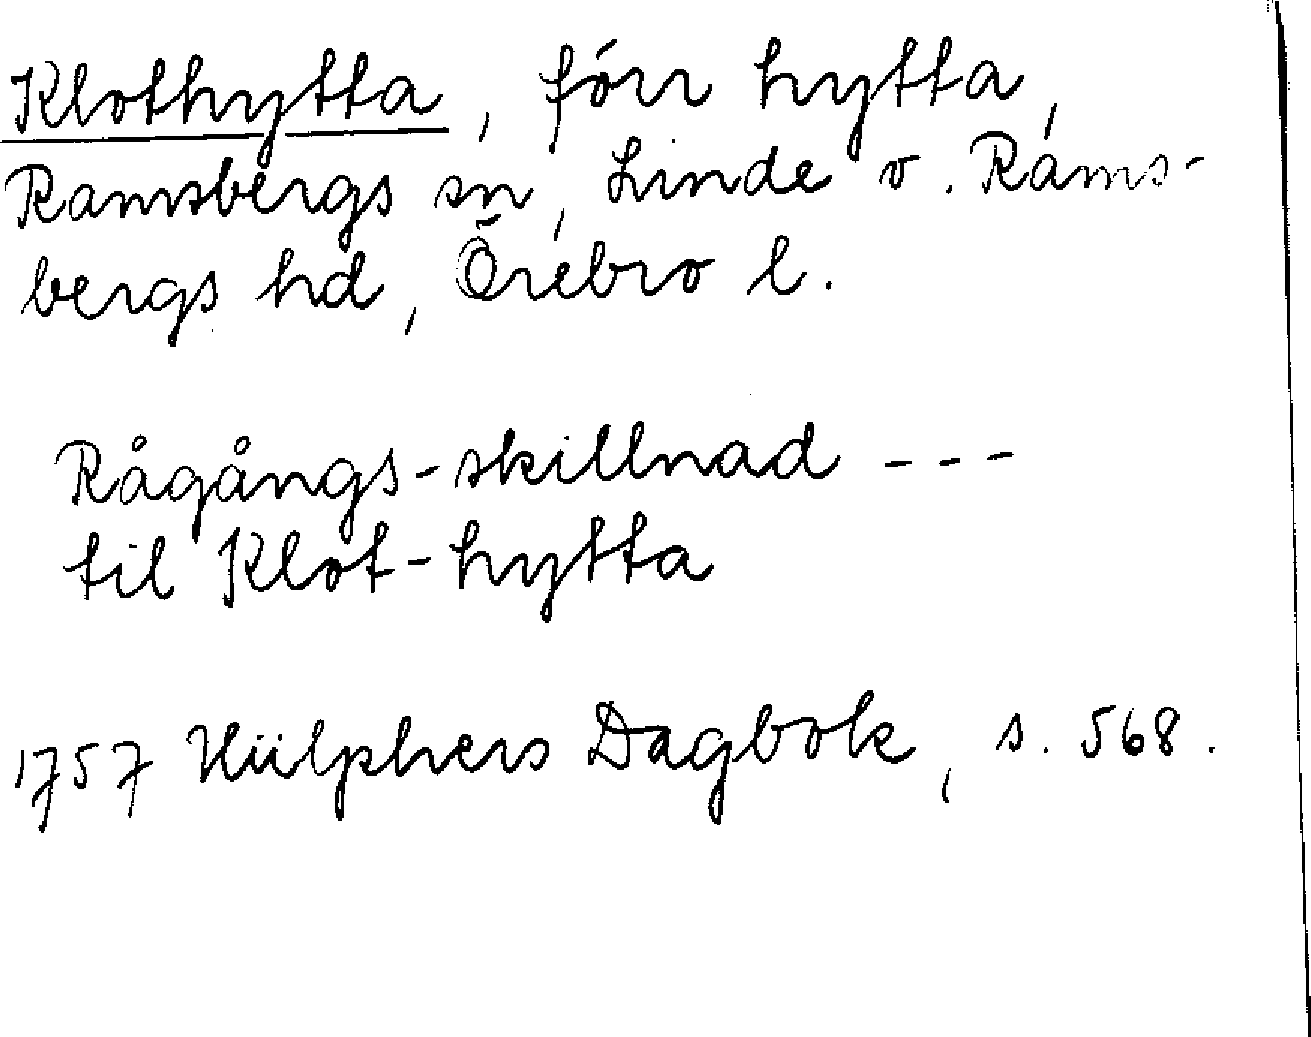 Klothytta, förr hytta,
Ramsbergs sn, Linde o. Rams-
bergs hd, Örebro l.
Rågångs-skillnad ---
til Klot-hytta
1757 Hülphers Dagbok, s. 568.